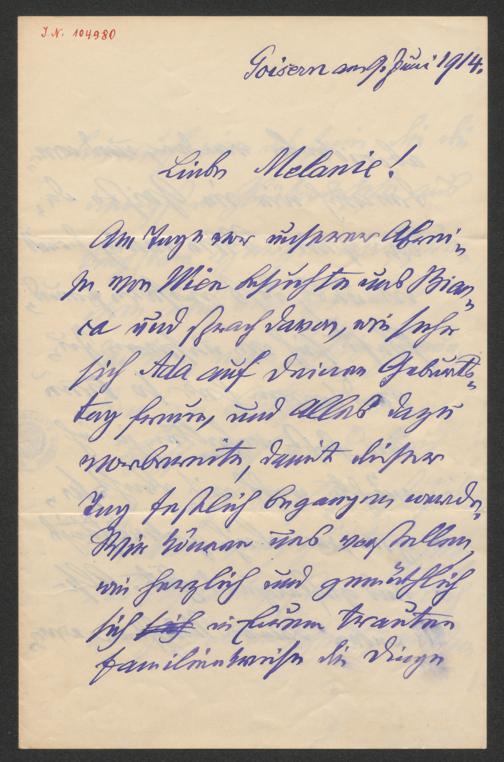 J. N. 104980
Goisern am 9. Juni 1914.
Liebe Melanie!
Am Tage vor unserer Abrei-
se von Wien besuchte uns Bian-
ca und sprach davon, wie sehr
sich Ada auf Deinen Geburts-
tag freue, und Alles dazu
vorbereite, damit dieser
Tag festlich begangen werde.
Wir können uns vorstellen,
wie herzlich und gemüthlich
sich sich in Eurem trauten
Familienkreise die Dinge